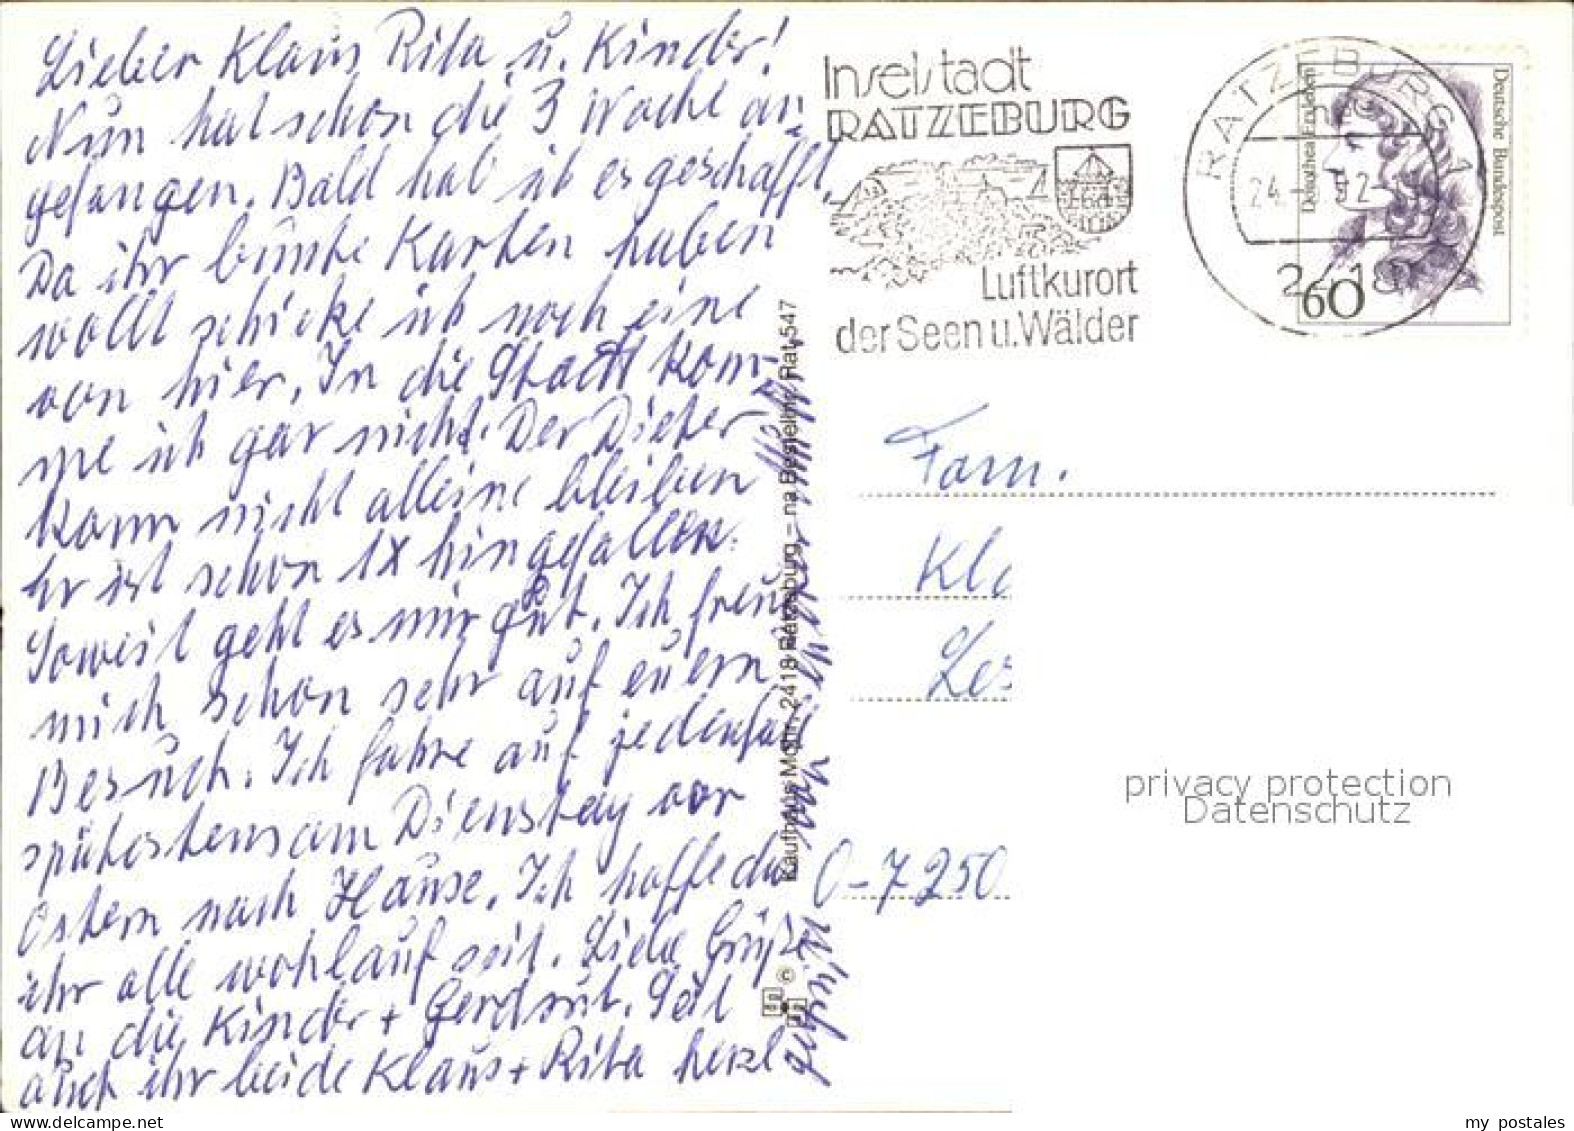 Lieber Klaus Rita u. Kinder!
Nun hat schon die 3 Woche an,
gefangen. Bald hab ich es geschafft,
Da ihr bunte Karten haben
wollt schicke ich noch eine
von hier. In die Stadt kom-
me ich gar nicht. Der Dieter
kann nicht alleine bleiben
Er ist schon 1x hingefallen.
Soweit geht es mir gut. Ich freue
mich schon sehr auf euern
Besuch. Ich fahre auf jedenfall
spätestens am Dienstag vor
Ostern nach Hause. Ich hoffe das
ihr alle wohlauf seit. Liebe Grüße
an die Kinder + Gerdsut. Seit
auch ihr beide Klaus + Rita herzl
gegrüßt
von
Kaufhaus Mohr, 2418 Ratzeburg – na Bestellnr. Rat 547
©
Inselstadt
RATZEBURG
Luftkurort
der Seen u. Wälder
RATZEBURG 1
24.- 92
2418
Dorothea Erxleben
Deutsche Bundespost
60
Fam.
Kla
Les
O-7250
privacy protection
Datenschutz
my postales